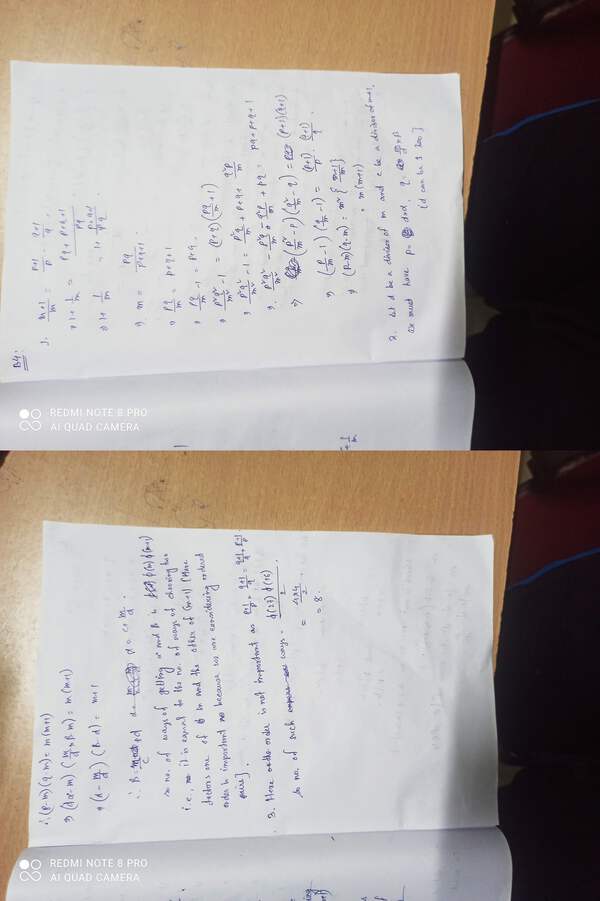 B4.
1. \frac{m+1}{m} = \frac{p+1}{p} \cdot \frac{q+1}{q}
⇒ 1+\frac{1}{m} = \frac{pq+p+q+1}{pq}
⇒ 1+\frac{1}{m} = 1+\frac{p+q+1}{pq}
⇒ m = \frac{pq}{p+q+1}
⇒ \frac{pq}{m} = p+q+1
⇒ \frac{pq}{m} - 1 = p+q
⇒ \frac{p²q²}{m²} - 1 = (p+q)(\frac{pq}{m}+1)
⇒ \frac{p²q²}{m²} - 1 = \frac{p²q}{m} + p+q+ \frac{q²p}{m}
⇒ \frac{p²q²}{m²} - \frac{p²q}{m} - \frac{q²p}{m} + pq = pq+p+q+1
⇒ (\frac{p²}{m} - p)(\frac{q²}{m} - q) = (p+1)(q+1)
⇒ (\frac{p}{m} - 1)(\frac{q}{m} - 1) = \frac{(p+1)}{p} \cdot \frac{(q+1)}{q}
⇒ (p-m)(q-m) = m² {\frac{m+1}{m}}
= m(m+1)
2. Let d be a divisor of m and c be a divisor of m+1.
we must have p = dα, q = \frac{m}{d}β
[d can be 1 too]
∴ (p-m)(q-m) = m(m+1)
⇒ (dα-m)(\frac{m}{d}β-m) = m(m+1)
⇒ (α-\frac{m}{d})(β-d) = m+1
so no. of ways of getting α and β is d(m) d(m+1)
i.e., it is equal to the no. of ways of choosing two
factors one of m and the other of (m+1) [Here
order is important because we are considering ordered
pairs].
3. Here order is not important as \frac{p+1}{p} \cdot \frac{q+1}{q} = \frac{q+1}{q} \cdot \frac{p+1}{p}
so no. of such ways =
= 8.
REDMI NOTE 8 PRO
AI QUAD CAMERA
REDMI NOTE 8 PRO
AI QUAD CAMERA